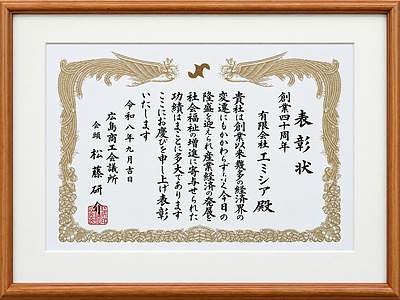 表彰状
創業四十周年
有限会社エミシア殿
貴社は創業以来幾多の経済界の
変遷にもかかわらず今日の
隆盛を迎えられ産業経済の発展と
社会福祉の増進に寄与せられた
功績はまことに多大であります
ここにお慶びを申し上げ表彰
いたします
令和八年九月吉日
広島商工会議所
会頭 松藤研介